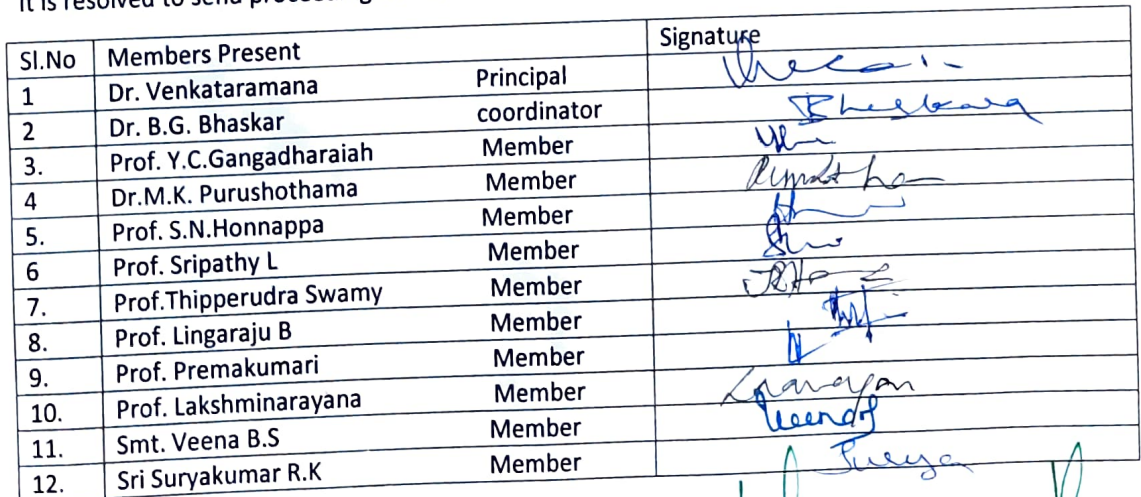 It is resolved to send
Sl.No Members Present Signature
1 Dr. Venkataramana Principal
2 Dr. B.G. Bhaskar coordinator Bhaskara
3. Prof. Y.C.Gangadharaiah Member
4 Dr.M.K. Purushothama Member
5. Prof. S.N.Honnappa Member
6 Prof. Sripathy L Member
7. Prof.Thipperudra Swamy Member
8. Prof. Lingaraju B Member
9. Prof. Premakumari Member
10. Prof. Lakshminarayana Member
11. Smt. Veena B.S Member
12. Sri Suryakumar R.K Member Surya